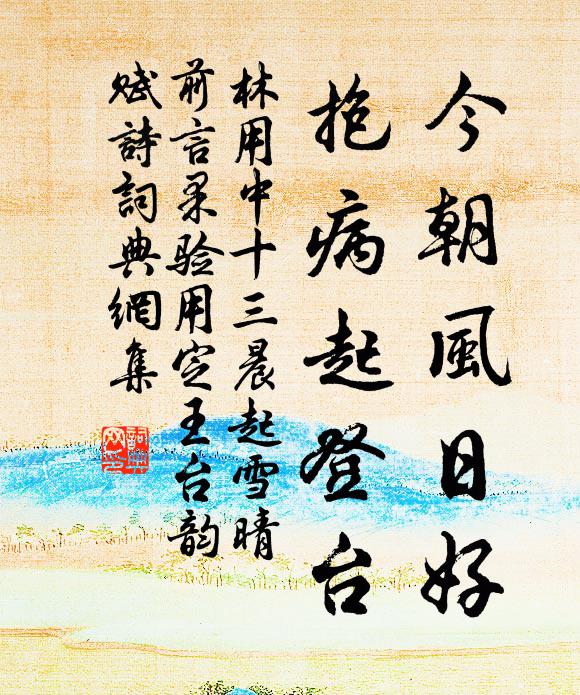 今朝風日好
抱病起登台
林用中十三晨起雪晴
前言果验用定王台韵
赋詩詞典網集